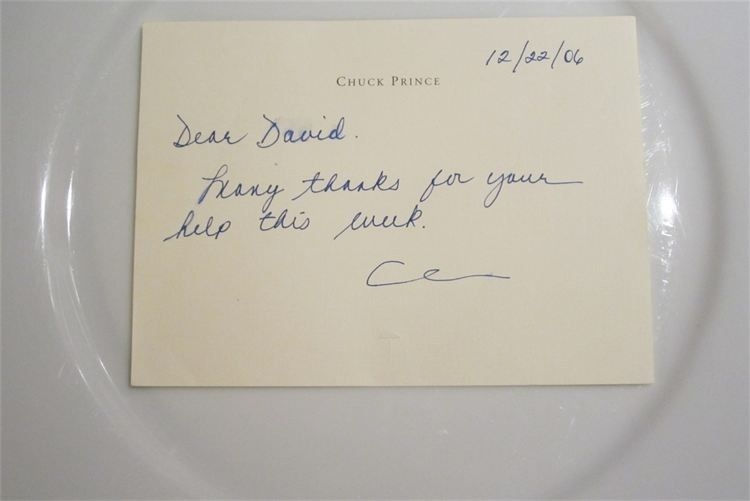 12/22/06
CHUCK PRINCE
Dear David.
Many thanks for your
help this week.